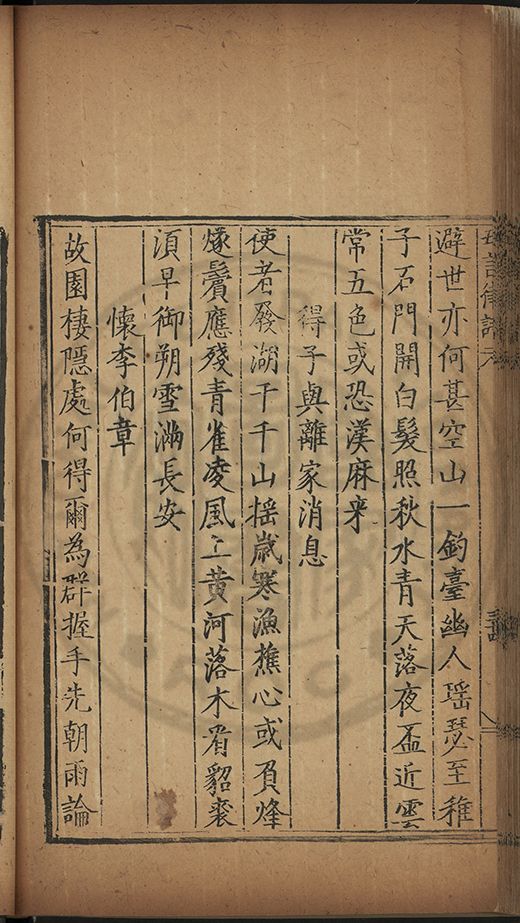 避世亦何甚空山一釣臺幽人瑶瑟至稚
子石門開白髮照秋水青天落夜盃近雲
常五色或恐漢麻来
得子與離家消息
使者發湖干千山揺歲寒漁樵心或負烽
燧鬢應殘青雀凌風上黃河落木看貂裘
湏早御朔雪滿長安
懷李伯章
故園棲隱處何得爾為群握手先朝雨論